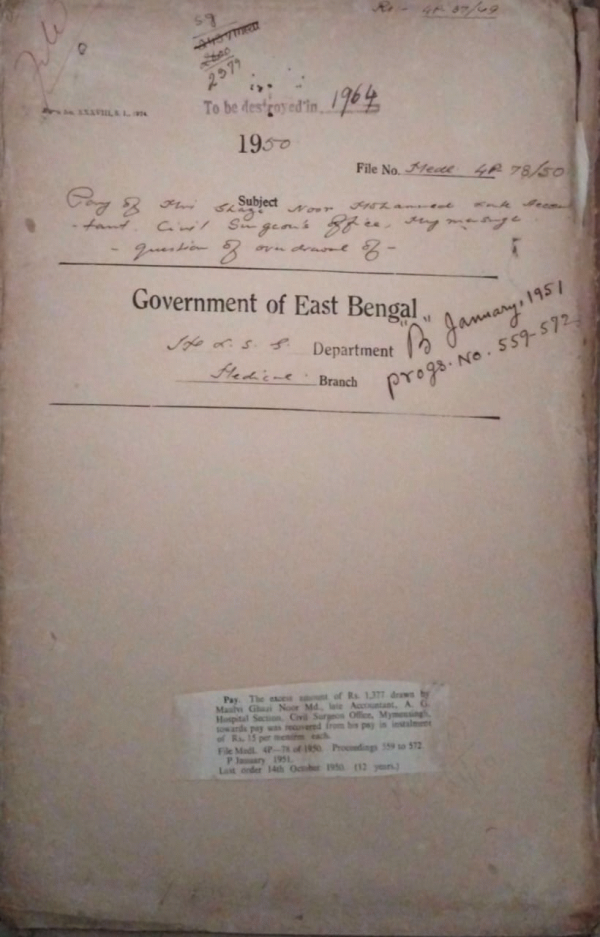 59
2379
To be destroyed in 1964
1950
File No. Medl 4P 78/50
Subject
Pay of Noor Mohammed late Accoun
-tant, Civil Surgeon's Office, Mymensingh
- question of overdrawal of -
Government of East Bengal
"B January, 1951
Department
Progs. No. 559-572
Medical Branch
Pay. The excess amount of Rs. 1,377 drawn by
Maulvi Ghazi Noor Md., late Accountant, A. G.
Hospital Section, Civil Surgeon Office, Mymensingh,
towards pay was recovered from his pay in instalment
of Rs. 15 per mensem each.
File Medl. 4P—78 of 1950. Proceedings 559 to 572
P January 1951.
Last order 14th October 1950. (12 years.)